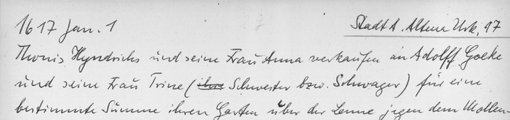 1617 Jan. 1 Stadt A. Altena Urk. 97
Thonis Hyndrichs und seine Frau Anna verkaufen an Adolff Goeke
und seine Frau Trine (ihre Schwester bzw. Schwager) für eine
bestimmte Summe ihren Garten über der Lenne jegen dem Mollen-